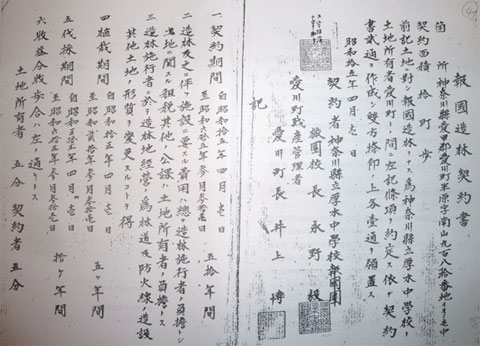 報國造林契約書
箇所 神奈川縣愛甲郡愛川町半原字南山九百八拾番地
契約面積 拾町歩
前記土地ニ對シ報國造林ヲナス為神奈川縣立厚木中學校ト
土地所有者愛川町トノ間ニ左記條項ノ約定ス依テ契約
書貳通ヲ作成シ双方捺印ノ上各壹通ヲ領置ス
昭和拾五年四月壱日
契約者神奈川縣立厚木中學校報國團
報國校長永野
愛川町財産管理者
愛川町長井上博
記
一 契約期間 自昭和拾五年四月壱日 至昭和六拾五年参月参拾壱日 五拾年間
二 造林及之ニ伴フ施設ニ要スル費用ハ總テ造林施行者ノ負擔トシ
土地ニ関スル租税其他ノ公課ハ土地所有者ノ負擔トス
三 造林施行者ニ於テ造林地経営ノ為林道及防火線ノ造設
其他土地ノ形質ヲ変更スルコトヲ得
四 植栽期間 自昭和拾五年四月壱日 至昭和貳拾年参月参拾壱日 五ケ年間
五 伐採期間 至昭和六拾五年参月参拾壱日 拾ケ年間
六 收益分收歩合ハ左ノ通リトス
土地所有者 五分 契約者 五分